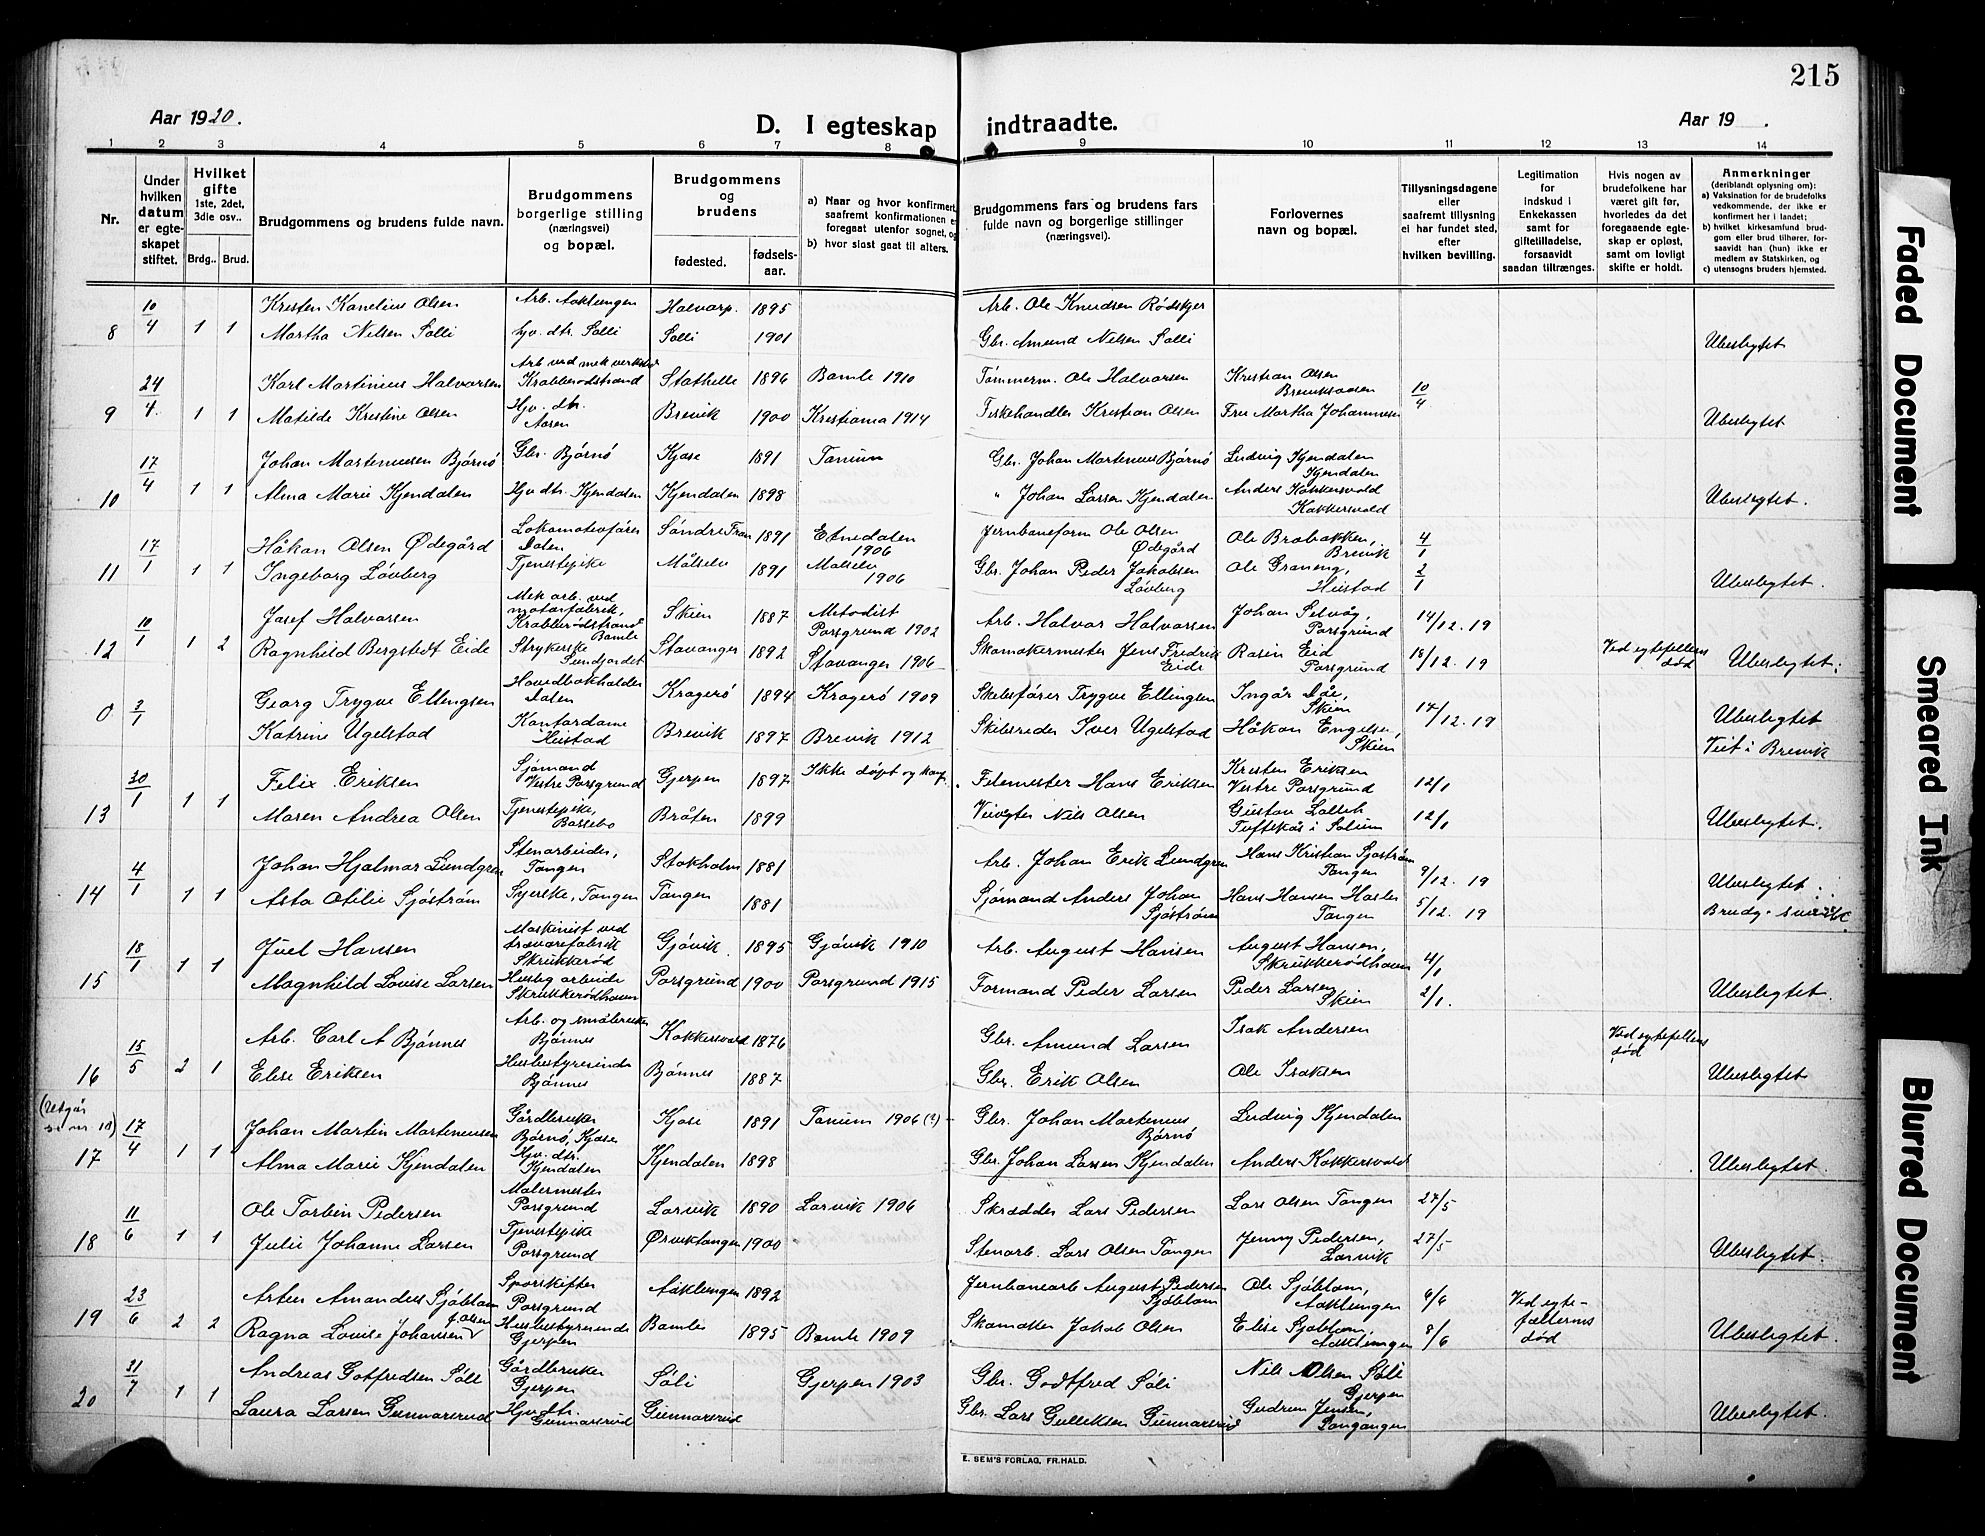 215
Aar 1920.
D. I egteskap indtraadte.
Aar 19 .
1 2 3 4 5 6 7 8 9 10 11 12 13 14
Nr.
Under hvilken datum er egteskapet stiftet.
Hvilket gifte 1ste, 2det, 3die osv..
Brdg.. Brud.
Brudgommens og brudens fulde navn.
Brudgommens borgerlige stilling (næringsvei) og bopæl.
Brudgommens og brudens
fødested.
fødselsaar.
a) Naar og hvor konfirmert, saafremt konfirmationen er foregaat utenfor sognet, og
b) hvor sidst gaat til alters.
Brudgommens fars og brudens fars fulde navn og borgerlige stillinger (næringsvei).
Forlovernes navn og bopæl.
Tillysningsdagene eller saafremt tillysning ei har fundet sted, efter hvilken bevilling.
Legitimation for indskud i Enkekassen samt for giftetilladelse, forsaavidt saadan tiltrænges.
Hvis nogen av brudefolkene har været gift før, hvorledes da det foregaaende egteskap er opløst, samt om lovligt skifte er holdt.
Anmerkninger (deriblandt oplysning om):
a) Vaksination for de brudefolks vedkommende, der ikke er konfirmert her i landet;
b) hvilket kirkesamfund brudgom eller brud tilhører, forsaavidt han (hun) ikke er medlem av Statskirken, og
c) utensogns bruders hjemsted.
10/4 Kristen Kornelius Olsen Arb. Aaklungen Halvarp. 1895 Arb. Ole Knudsen Rødskjer
8 1 1 Martha Nilsen Solli hjv. dtr. Solli Solli 1901 Gbr. Amund Nilsen Solli Ubeslegtet
24/4 Karl Martinius Halvorsen Arb. ved mek. verksted Krabberødstrand Stathelle 1896 Bamle 1910 Tømmerm. Ole Halvorsen Kristian Olsen 10/4
9 1 1 Matilde Kristine Olsen Hjv. dtr. Aasen Brevik 1900 Kristiania 1914 Fiskehandler Kristian Olsen Fru Martha Johannesen Ubeslegtet
17/4 Johan Martinussen Bjørnø Gbr. Bjørnø Kjøse 1891 Tanum Gbr. Johan Martenius Bjørnø Ludvig Kjendalen Kjendalen
10 1 1 Alma Marie Kjendalen Hjv. dtr. Kjendalen Kjendalen 1898 " Johan Larsen Kjendalen Anders Kokkersvold Kokkersvold Ubeslegtet.
17/1 Håkan Olsen Ødegård Lokomotivfører Dalen Søndre Fron 1891 Etnedalen 1906 Jernbaneform Ole Olsen Ødegård Ole Brobakken, Brevik 4/1
11 1 1 Ingeborg Løvberg Tjenestepike Målselv 1891 Malselv 1906 Gbr. Johan Peder Jakobsen Løvberg Ole Graneng, Heistad 2/1 Ubeslegtet.
10/1 Josef Halvorsen Mek. arb. ved motorfabrik, Krabberødstrand Bamle Skien 1887 Metodist Porsgrund 1902 Arb. Halvor Halvorsen Johan Selvåg, Porsgrund 14/12.19
12 1 2 Ragnhild Bergstedt Eide Strykerske Sundjordet Stavanger 1892 Stavanger 1906 Skomakermester Jens Fredrik Eide Rasin Eid Porsgrund 18/12.19 Ved egtefellens død Ubeslegtet.
3/1 Georg Trygve Ellingsen Hovedbokholder Dalen Kragerø 1894 Kragerø 1909 Skibsfører Trygve Ellingsen Ingår Dåe, Skien 14/12.19 Ubeslegtet
0 Katrine Ugelstad Kontordame Heistad Brevik 1897 Brevik 1912 Skibsreder Iver Ugelstad Håkon Engelsen, Skien Viet i Brevik
30/1 Felix Eriksen Sjømand Vestre Porsgrund Gjerpen 1897 Ikke døpt og konf. Filemester Hans Eriksen Kristen Eriksen Vestre Porsgrund 12/1
13 1 1 Maren Andrea Olsen Tjenestepike, Bassebo Bråten 1899 Veivogter Nils Olsen Gustav Tuftekås i Solum 12/1 Ubeslegtet.
4/1 Johan Hjalmar Lundgren Stenarbeider, Tangen Stokholm 1881 Arb. Johan Erik Lundgren Hans Kristian Sjøstrøm Tangen 9/12.19 Ubeslegtet.
14 1 1 Asta Otilie Sjøstrøm Syerske, Tangen Tangen 1881 Sjømand Anders Johan Sjøstrøm Hans Hansen Hasler Tangen 5/12.19 Brudg. svensk.
18/1 Juel Hansen Maskinist ved trævarefabrik Skrukkerød Gjøvik 1895 Gjøvik 1910 Arb. August Hansen August Hansen, Skrukkerødhaven 4/1
15 1 1 Magnhild Louise Larsen Huslig arbeide Skrukkerødhaven Porsgrund 1900 Porsgrund 1915 Formand Peder Larsen Peder Larsen Skien 2/1. Ubeslegtet.
15/5 Arb. Carl A Bjønnes Arb. og småbruker Bjønnes Kokkersvold 1876 Gbr. Amund Larsen Isak Andersen Ved egtefellens død
16 2 1 Elise Eriksen Husbestyrerinde Bjønnes Bjønnes 1887 Gbr. Erik Olsen Ole Isaksen Ubeslegtet
(Utgår se nr 10) 17/4 Johan Martin Martinussen Gårdbruker Bjørnø, Kjøse Kjøse 1891 Tanum 1906 (?) Gbr. Johan Martenius Bjørnø Ludvig Kjendalen
17 1 1 Alma Marie Kjendalen Hjv. dtr. Kjendalen Kjendalen 1898 Gbr. Johan Larsen Kjendalen Anders Kokkersvold Ubeslegtet.
11/6 Ole Torbin Pedersen Malermester Porsgrund Larvik 1890 Larvik 1906 Skrædder Lars Pedersen Lars Olsen Tangen 27/5
18 1 1 Julie Johanne Larsen Tjenestepike Porsgrund Ørviktangen 1900 Stenarb. Lars Olsen Tangen Jenny Pedersen, Larvik 27/5 Ubeslegtet.
23/6 Arten Amandus Sjøblom Sporskifter Porsgrund Aaklungen 1892 Jernbanearb August Pedersen Sjøblom Ole Sjøblom, Aaklungen 6/6 Ved egtefællerns død
19 2 2 Ragna Louise Johansen f. Olsen Husbestyrerinde Gjerpen Bamle 1895 Bamle 1909 Skomaker Jakob Olsen Elise Sjøblom, Aaklungen 8/6 Ubeslegtet.
31/7 Andreas Gotfredsen Sóli Gårdbruker Gjerpen Sóli Gjerpen 1903 Gbr. Godtfred Sóli Nils Olsen Sóli Gjerpen
20 1 1 Laura Larsen Gunnarsrud Hjv. dtr. Gunnarsrud Gunnarsrud Gbr. Lars Gulliksen Gunnarsrud Gudrun Jensen, Ubeslegtet.
E. SEM'S FORLAG, FR.HALD.
Faded Document
Smeared Ink
Blurred Document